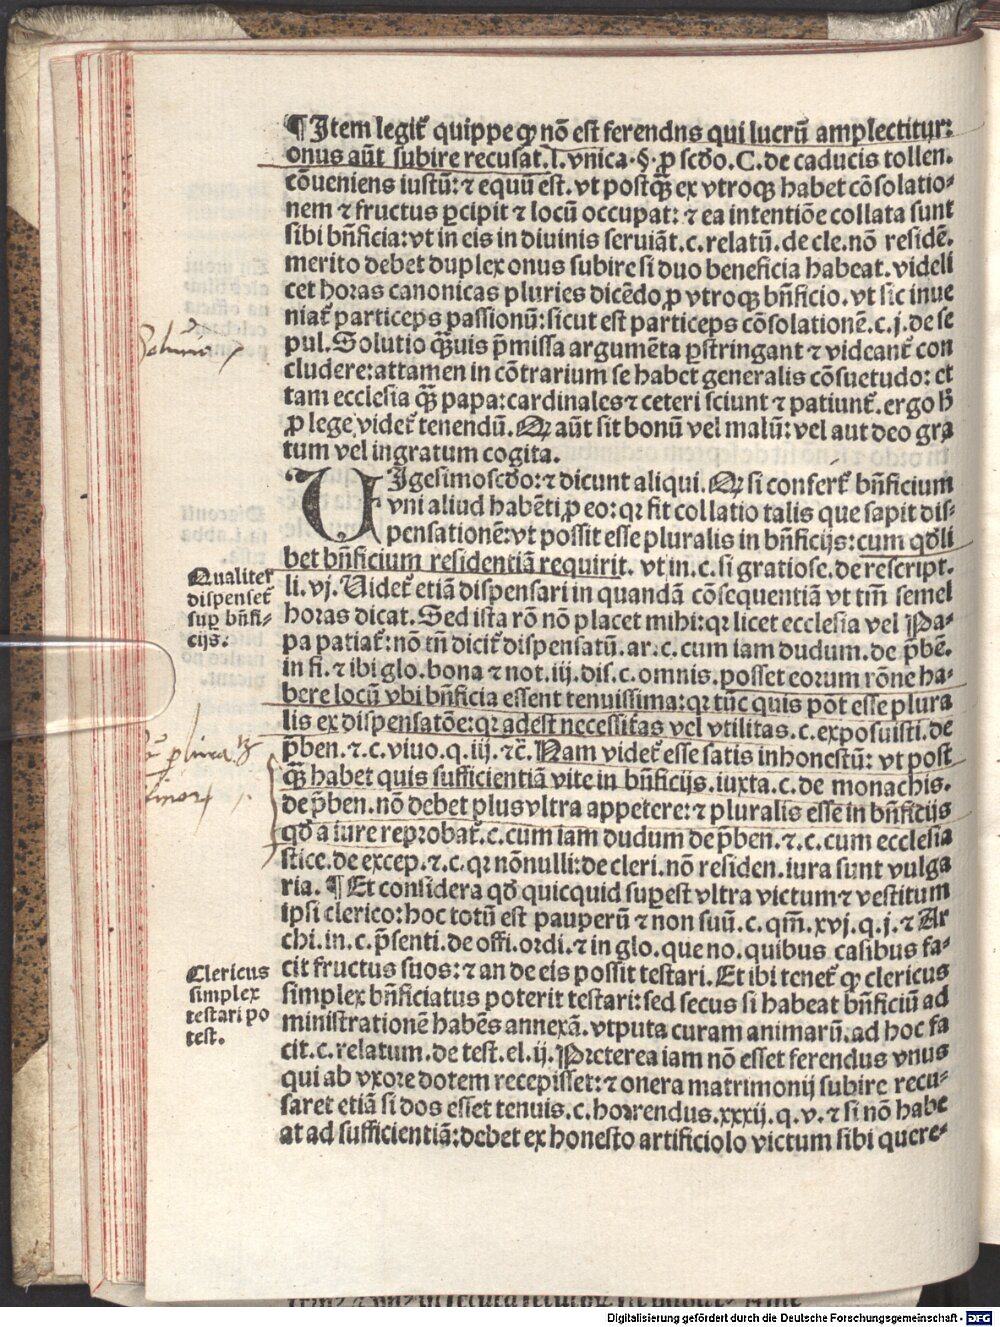 ¶ Item legit᷑ quippe ꝙ nō est ferendns qui lucrū amplectitur:
onus aūt subire recusat. l. vnica. §. ꝓ scdo. C. de caducis tollen.
cōueniens iustū: ⁊ equū est. vt postꝙ̄ ex vtroqꝫ habet cōsolatio⸗
nem ⁊ fructus ꝑcipit ⁊ locū occupat: ⁊ ea intentiōe collata sunt
sibi bn̄ficia: vt in eis in diuinis seruiāt. c. relatū. de cle. nō residē.
merito debet duplex onus subire si duo beneficia habeat. videli
cet horas canonicas pluries dicēdo ꝓ vtroqꝫ bn̄ficio. vt sic inue
niat᷑ particeps passionū: sicut est particeps cōsolationē. c. j. de se
pul. Solutio ꝙ̄uis p̄missa argumēta ꝑstringant ⁊ videant᷑ con
cludere: attamen in cōtrarium se habet generalis cōsuetudo: et
tam ecclesia ꝙ̄ papa: cardinales ⁊ ceteri sciunt ⁊ patiunt᷑. ergo h̄
ꝓ lege videt᷑ tenendū. Qꝫ aūt sit bonū vel malū: vel aut deo gra
tum vel ingratum cogita.
VIgesimoscdo: ⁊ dicunt aliqui. Qꝫ si confert᷑ bn̄ficium
vni aliud habēti ꝓ eo: qꝛ fit collatio talis que sapit dis⸗
pensationē: vt possit esse pluralis in bn̄ficijs: cum qd̄li
bet bn̄ficium residentiā requirit. vt in. c. si gratiose. de rescript.
li. vj. Videt᷑ etiā dispensari in quandā cōsequentiā vt tm̄ semel
horas dicat. Sed ista rō nō placet mihi: qꝛ licet ecclesia vel Pa⸗
pa patiat᷑: nō tn̄ dicit᷑ dispensatū. ar. c. cum iam dudum. de p̄bē.
in fi. ⁊ ibi glo. bona ⁊ not. iij. dis. c. omnis. posset eorum rōne ha⸗
bere locū vbi bn̄ficia essent tenuissima: qꝛ tūc quis pōt esse plura
lis ex dispensatōe: qꝛ adest necessitas vel vtilitas. c. exposuisti. de
p̄ben. ⁊. c. viuo. q. iij. ⁊c̄. Nam videt᷑ esse satis inhonestū: vt post
ꝙ̄ habet quis sufficientiā vite in bn̄ficijs. iuxta. c. de monachis.
de p̄ben. nō debet plus vltra appetere: ⁊ pluralis esse in bn̄ficijs
qd̄ a iure reprobat᷑. c. cum iam dudum de p̄ben. ⁊. c. cum ecclesia
stice. de excep. ⁊. c. qꝛ nōnulli: de cleri. nō residen. iura sunt vulga
ria. ¶ Et considera qd̄ quicquid suꝑest vltra victum ⁊ vestitum
ipsi clerico: hoc totū est pauperū ⁊ non suū. c. qm̄. xvj. q. j. ⁊ Ar
chi. in. c. p̄senti. de offi. ordi. ⁊ in glo. que no. quibus casibus fa⸗
cit fructus suos: ⁊ an de eis possit testari. Et ibi tenet᷑ ꝙ clericus
simplex bn̄ficiatus poterit testari: sed secus si habeat bn̄ficiū ad
ministrationē habēs annexā. vtputa curam animarū. ad hoc fa
cit. c. relatum. de test. el. ij. Preterea iam nō esset ferendus vnus
qui ab vxore dotem recepisset: ⁊ onera matrimonij subire recu⸗
saret etiā si dos esset tenuis. c. horrendus. xxxij. q. v. ⁊ si nō habe
at ad sufficientiā: debet ex honesto artificiolo victum sibi quere⸗
Qualiter
dispenset᷑
suꝑ bn̄fi⸗
cijs.
Clericus
simplex
testari po
test.
Digitalisierung gefördert durch die Deutsche Forschungsgemeinschaft - DFG